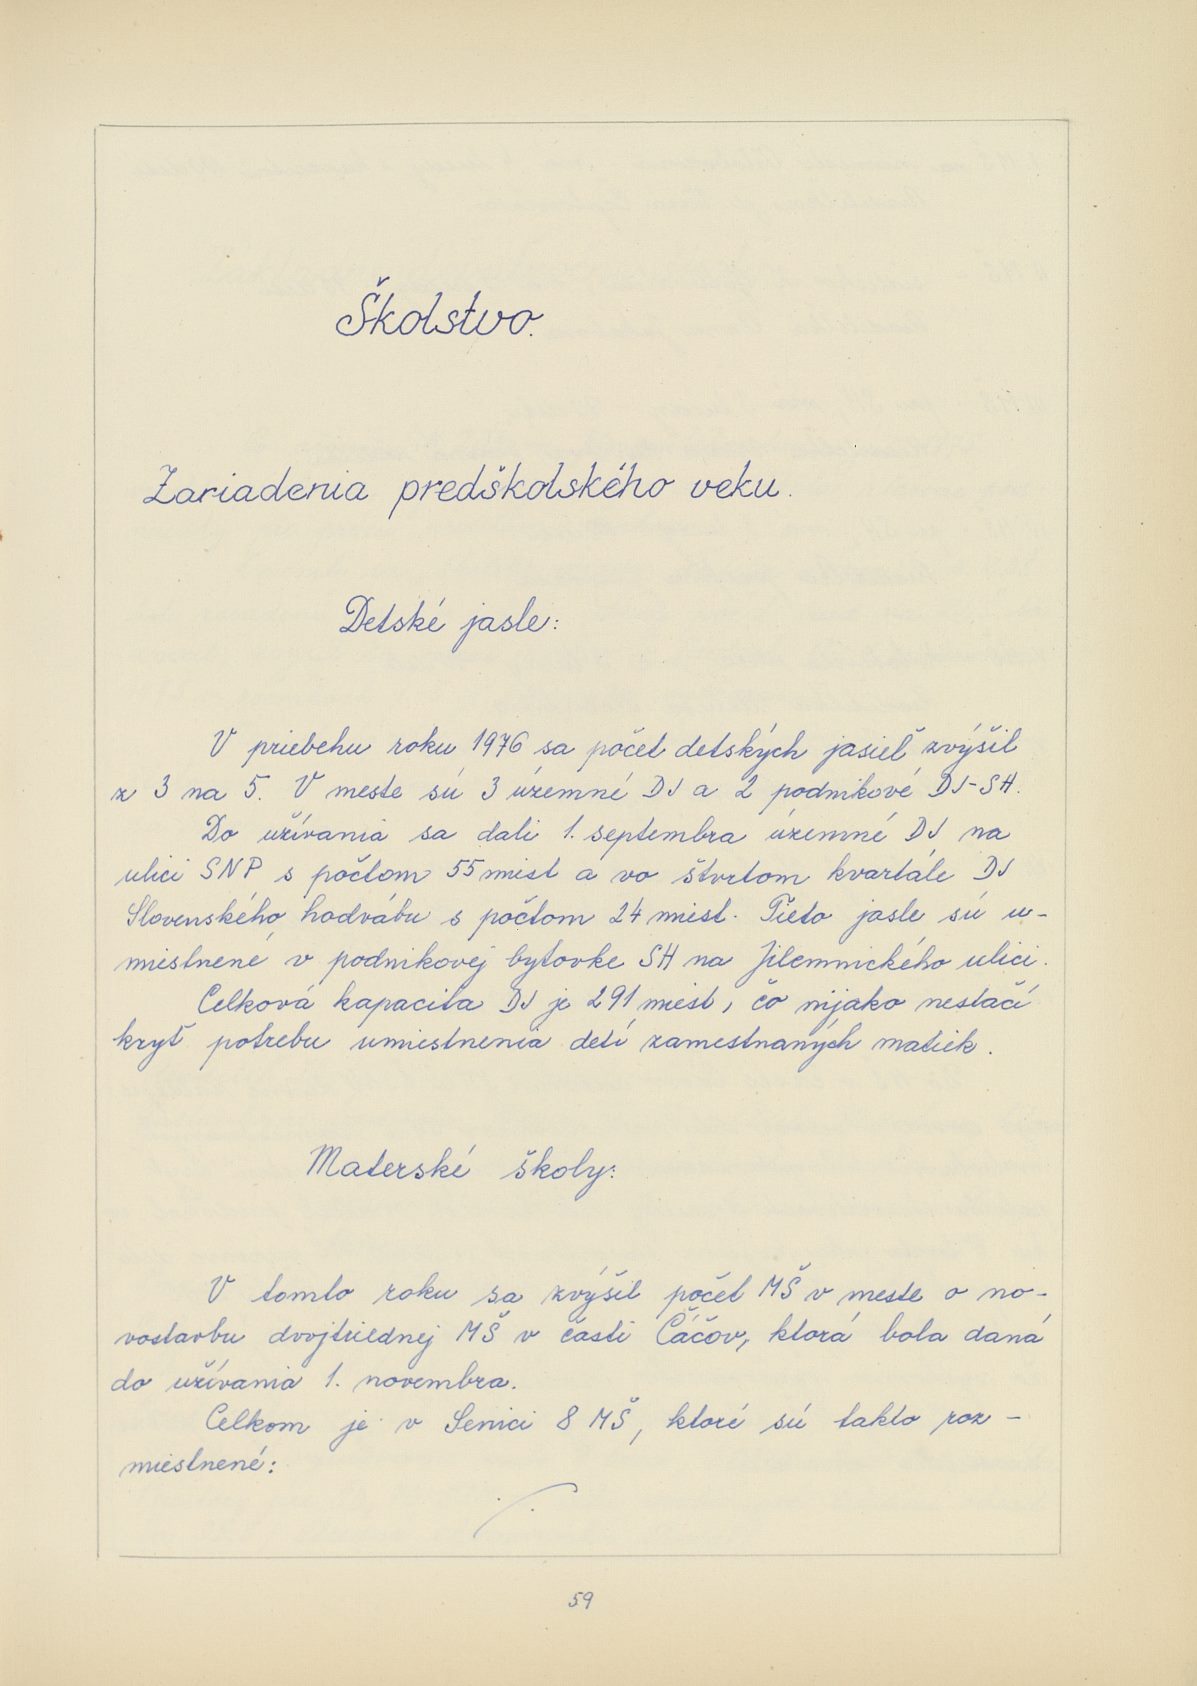 Školstvo.
Zariadenia predškolského veku.
Detské jasle:
V priebehu roku 1976 sa počet detských jasieľ zvýšil
z 3 na 5. V meste sú 3 územné DJ a 2 podnikové DJ-SH.
Do užívania sa dali 1. septembra územné DJ na
ulici SNP s počtom 55 miest a vo štvrtom kvartále DJ
Slovenského hodvábu s počtom 24 miest. Tieto jasle sú u-
miestnené v podnikovej bytovke SH na Jilemnického ulici.
Celková kapacita DJ je 291 miest, čo nijako nestačí
kryť potrebu umiestnenia detí zamestnaných matiek.
Materské školy:
V tomto roku sa zvýšil počet MŠ v meste o no-
vostavbu dvojtriednej MŠ v časti Čáčov, ktorá bola daná
do užívania 1. novembra.
Celkom je v Senici 8 MŠ, ktoré sú takto roz-
miestnené:
./.
59